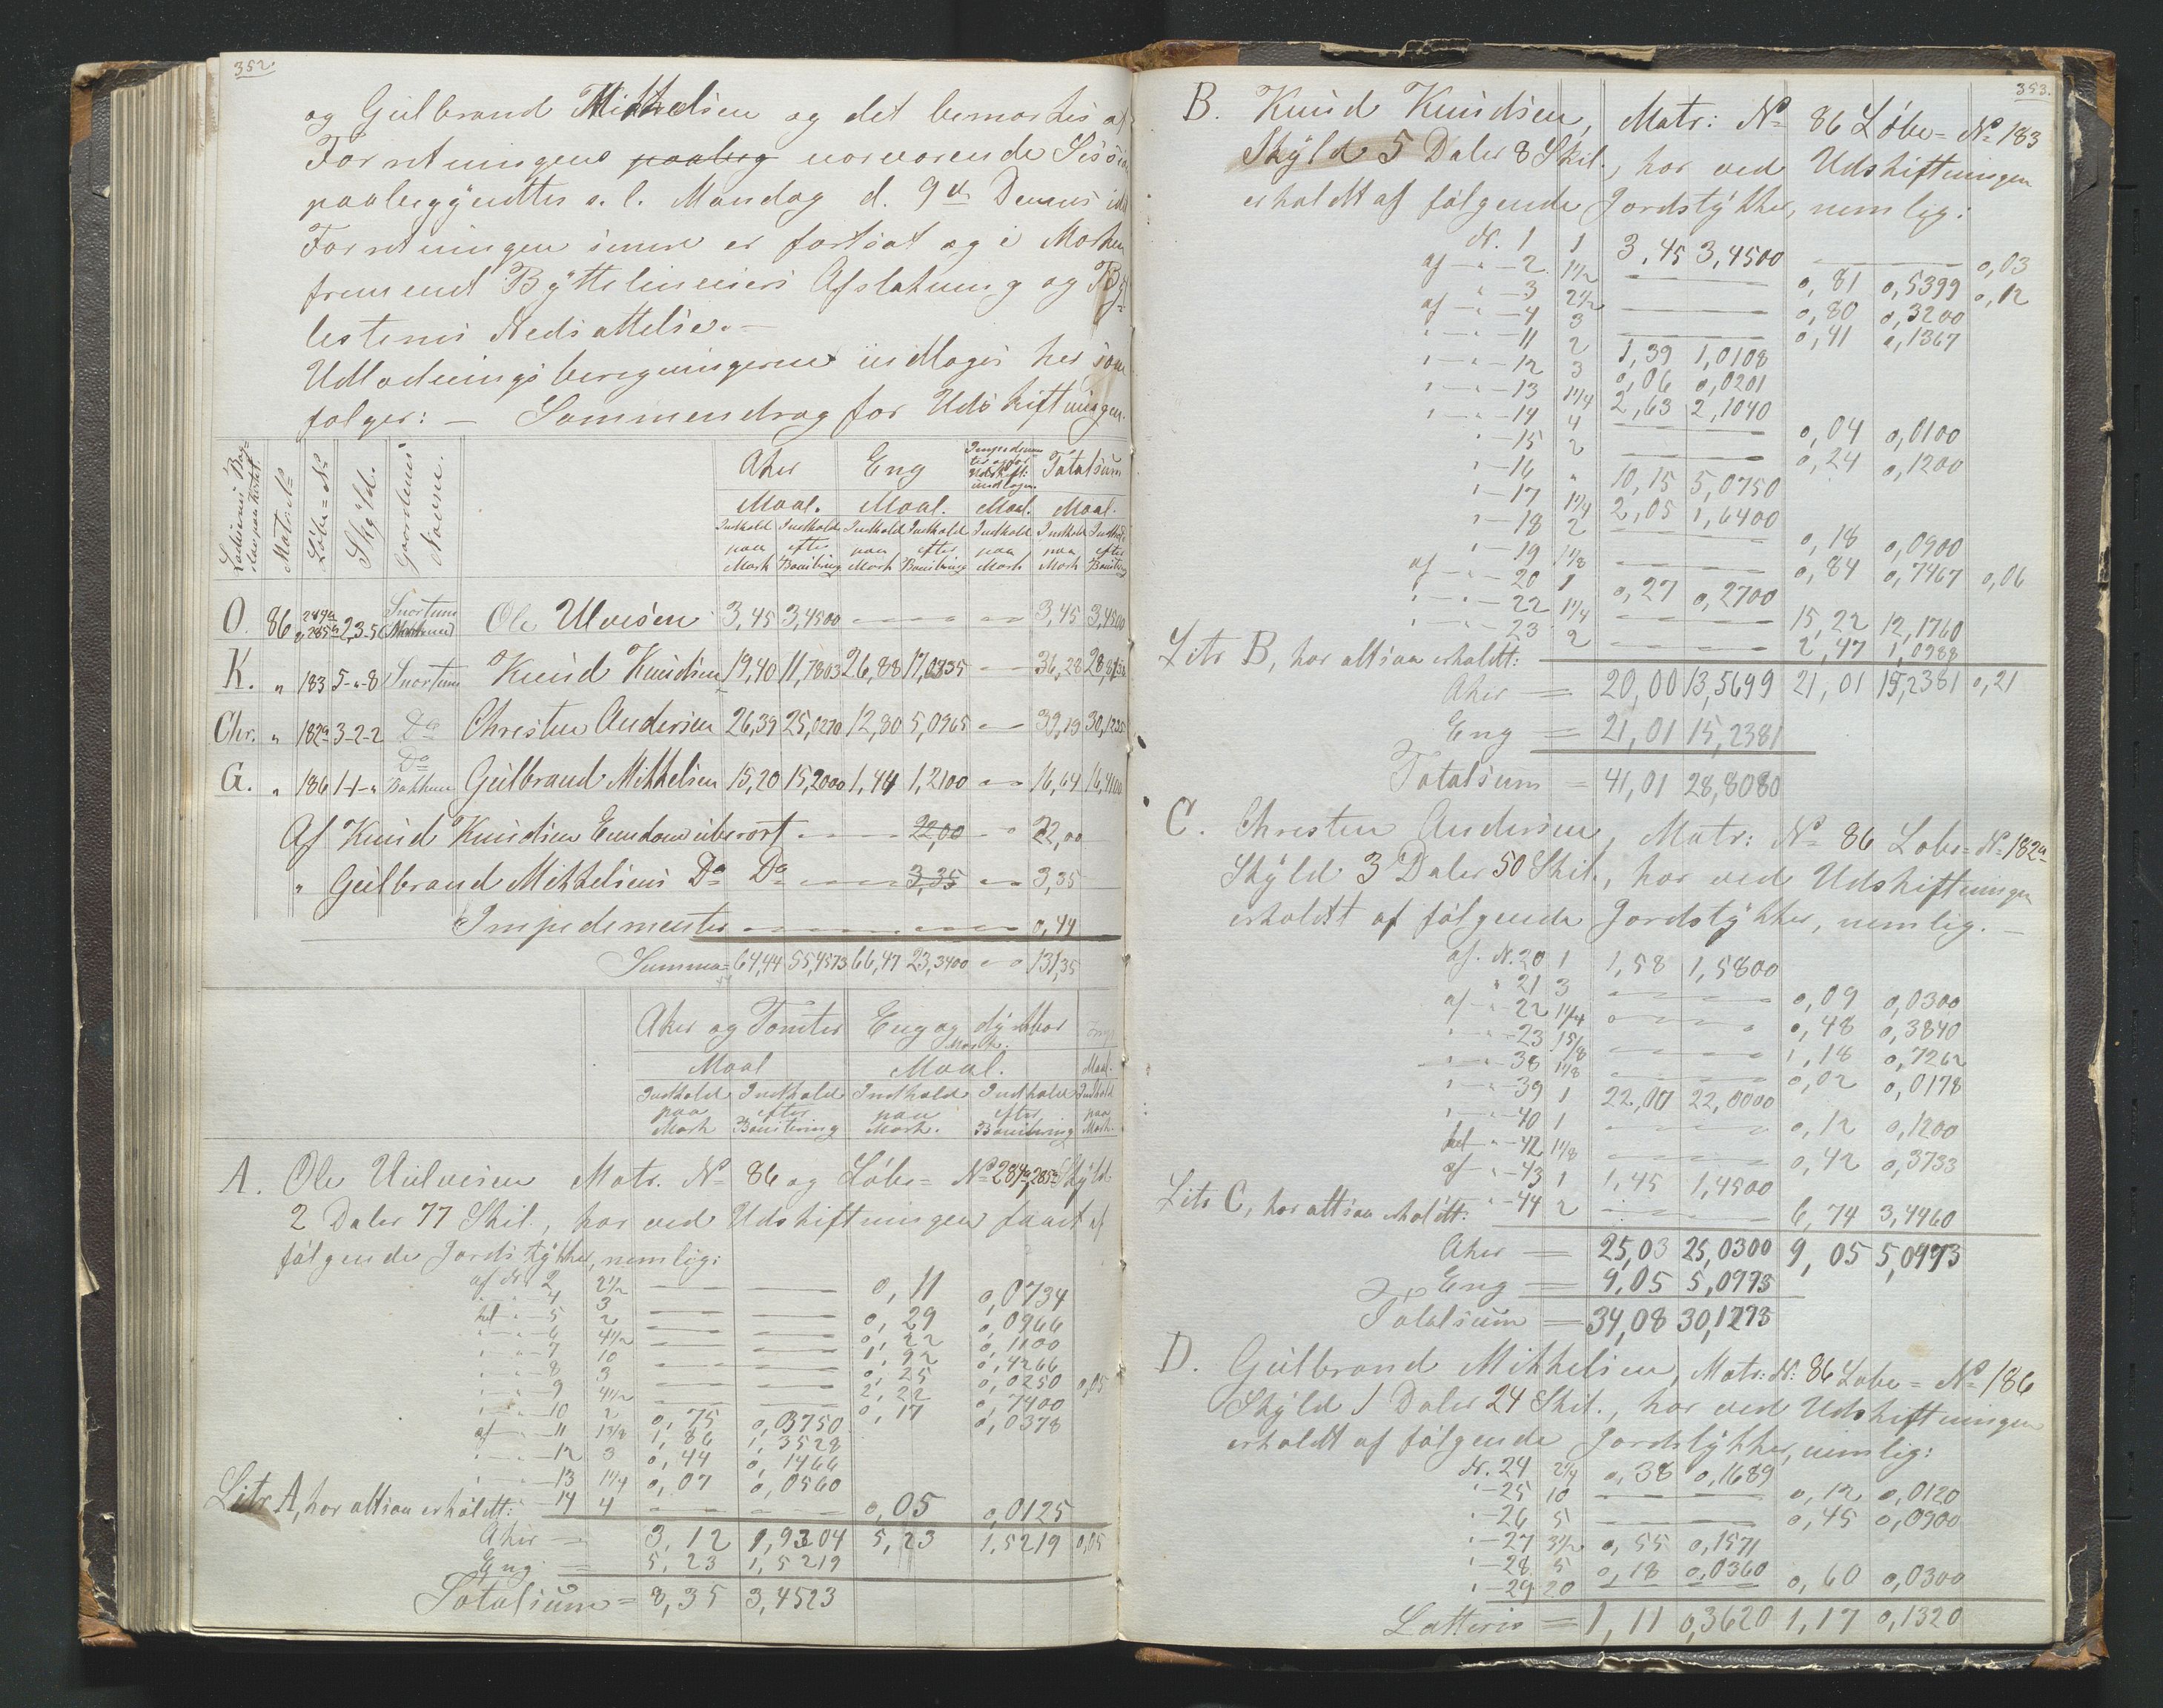 352.
og Gulbrand Mikkelsen og det bemærkes at
Forretningens paabeg nærværende Session
paabegyndtes s. l. Mandag d. 9de Dennes
Forretningen senere er fortsat og i Marken
fremmet Byttelinieers Afstakning og
lestenes Nedsættelse. —
Udlodningsberegningerne indtages her som
følger: — Sammendrag for Udskiftningen.
Matr. No Løbe-No Skyld. Gaardenes Navne. Aker Eng Totalsum
Maal. Maal. Maal. Maal.
Indhold paa Mark Indhold efter Bonitering Indhold paa Mark Indhold efter Bonitering Indhold paa Mark Indhold paa Mark Indhold efter Bonitering
O. 86 Snortum Ole Ulvesen 3,45 3,4500 — — — 3,45 3,4500
K. " 183 5-"-8 Snortum Knud Knudsen 19,40 11,7803 26,88 17,0335 — 36,28
Chr. " 182a 3-2-2 Do Christen Andersen 26,39 25,0270 12,80 5,0965 — 39,19 30,1235
G. " 186 1-1-" Do Bakken Gulbrand Mikkelsen 15,20 15,2000 1,44 1,2100 — 16,64 16,4100
Af Knud Knudsen — — 22,00 — 22,00
" Gulbrand Mikkelsens Do Do — — 3,35 — 3,35
Impedimenter — — — 0,44
Summa = 64,44 55,4573 66,47 23,3400 — 131,35
Aker og Tomter Eng og dyrkbar Mark.
Maal Maal. Maal.
Indhold paa Mark Indhold efter Bonitering Indhold paa Mark. Indhold efter Bonitering Indhold paa Mark.
A. Ole Ulvesen Matr. No 86 og Løbe- No 284a, 285b Skyld
2 Daler 77 Skil., har ved Udskiftningen faaet af
følgende Jordstykker, nemlig:
af Nr 2 2½ — — 0,11 0,0734
" " 4 3 — — 0,29 0,0966
hel " 5 2 — — 0,22 0,1100
" " 6 4½ — — 1,92 0,4266
" " 7 10 — — 0,25 0,0250 0,05
" " 8 3 — — 2,22 0,7400
" " 9 4½ — — 0,17 0,0378
" " 10 2 0,75 0,3750
af " 11 1⅜ 1,86 1,3528
" " 12 3 0,44 0,1466
" " 13 1¼ 0,07 0,0560
Litr A, har altsaa erholdt: 14 4 — — 0,05 0,0125
Aker = 3,12 1,9304 5,23 1,5219 0,05
Eng = 5,23 1,5219
Totalsum = 8,35 3,4523
353.
B. Knud Knudsen, Matr: No 86 Løbe- No 183
Skyld 5 Daler 8 Skil., har ved Udskiftningen
erholdt af følgende Jordstykker, nemlig:
Nr. 1 1 3,45 3,4500 — 0,03
af " 2 1½ — — 0,81 0,5399 0,12
" 3 2½ — — 0,80 0,3200
af " 4 3 — — 0,41 0,1367
" " 11 2 1,39 1,0108
" " 12 3 0,06 0,0201
" " 13 1¼ 2,63 2,1040
" " 14 4 — — 0,04 0,0100
" 15 2 — — 0,24 0,1200
" 16 " 10,15 5,0750
" 17 1¼ 2,05 1,6400
" 18 2 — — 0,18 0,0900
" 19 1⅛ — — 0,84 0,7467 0,06
af " 20 1 0,27 0,2700
" " 22 1¼ — — 15,22 12,1760
" " 23 2 — — 2,47 1,0988
Litr B, har altsaa erholdt:
Aker = 20,00 13,5699 21,01 15,2381 0,21
Eng = 21,01 15,2381
Totalsum = 41,01 28,8080
C. Christen Andersen, Matr: No 86 Løbe- No 182a
Skyld 3 Daler 50 Skil., har ved Udskiftningen
erholdt af følgende Jordstykker, nemlig. —
af. N. 20 1 1,58 1,5800
" 21 3 — — 0,09 0,0300
af " 22 1¼ — — 0,48 0,3840
" " 23 1⅝ — — 1,18 0,7262
" " 38 1⅛ — — 0,02 0,0178
" " 39 1 22,00 22,0000
" " 40 1 — — 0,12 0,1200
hel " 42 1⅛ — — 0,42 0,3733
af " 43 1 1,45 1,4500
Litr C, har altsaa erholdt: " 44 2 — — 6,74 3,4460
Aker = 25,03 25,0300 9,05 5,0973
Eng = 9,05 5,0973
Totalsum = 34,08 30,1273
D. Gulbrand Mikkelsen, Matr: N: 86 Løbe- No 186
Skyld 1 Daler 24 Skil., har ved Udskiftningen
erholdt af følgende Jordstykker, nemlig:
N. 24 2¼ 0,38 0,1689
" 25 10 — — 0,12 0,0120
" 26 5 — — 0,45 0,0900
" 27 3½ 0,55 0,1571
" 28 5 0,18 0,0360
" 29 20 — — 0,60 0,0300
Latteris = 1,11 0,3620 1,17 0,1320